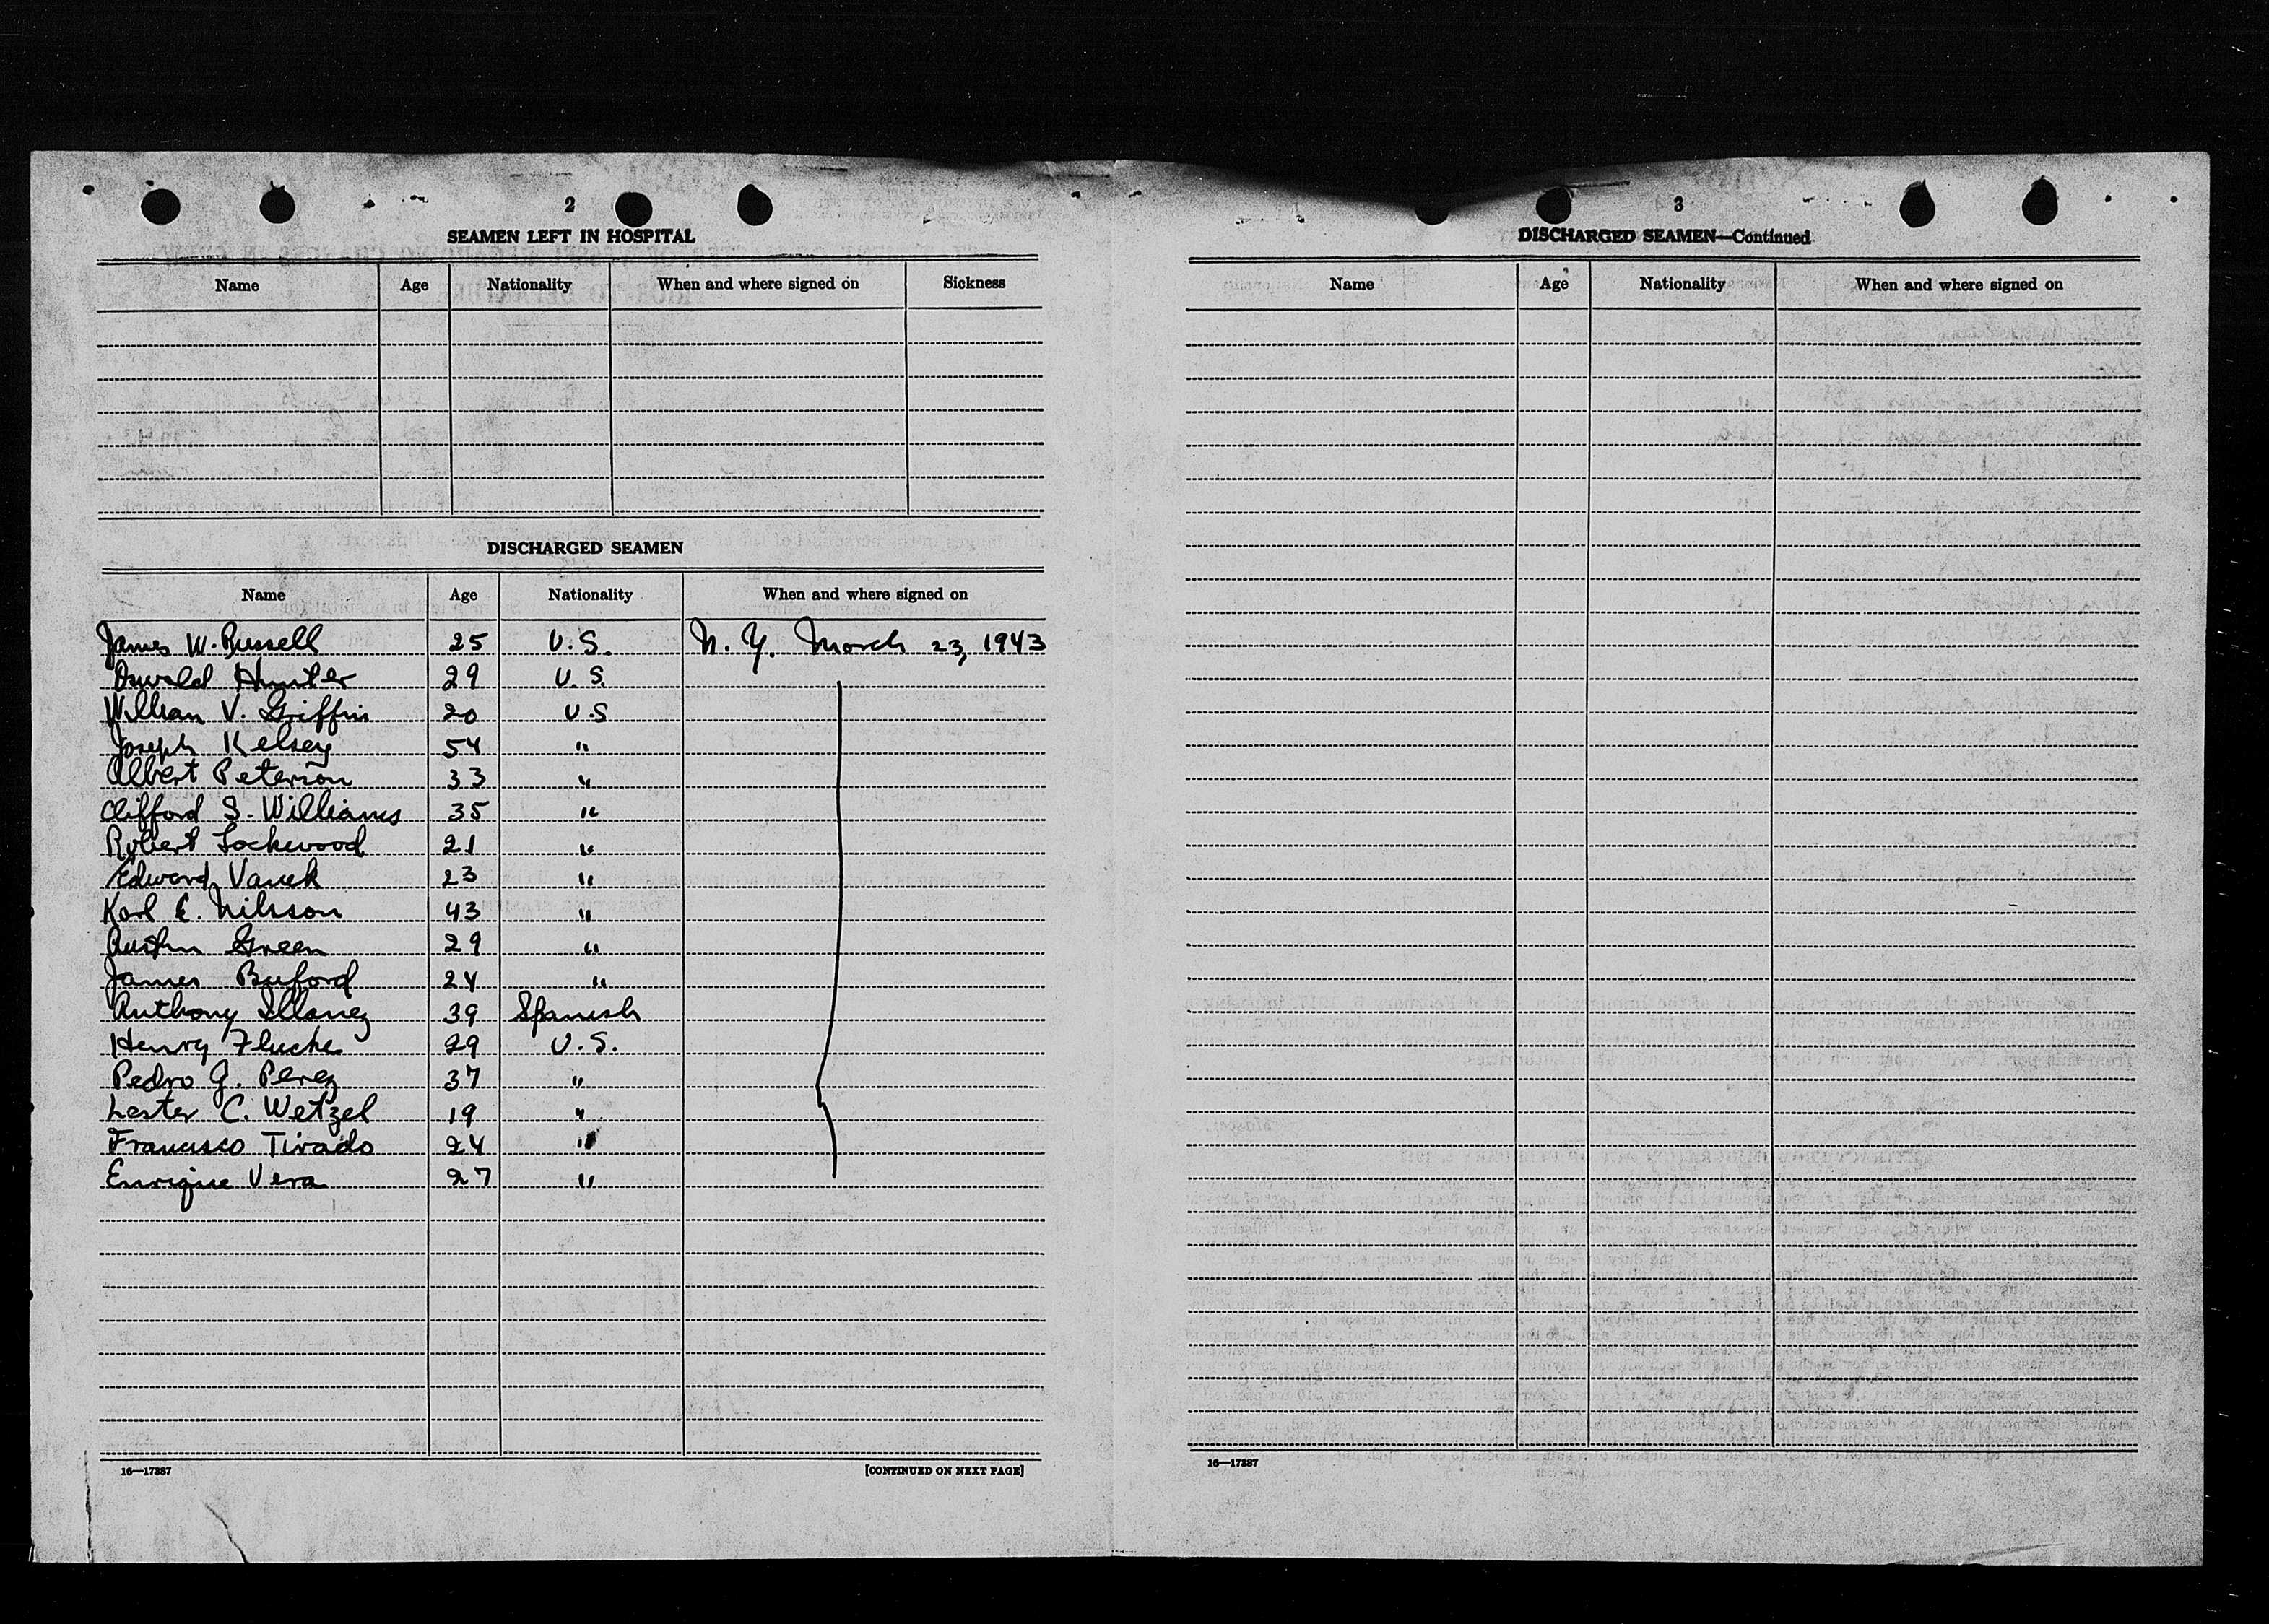 2
SEAMEN LEFT IN HOSPITAL
Name Age Nationality When and where signed on Sickness
DISCHARGED SEAMEN
Name Age Nationality When and where signed on
James W. Russell 25 U.S. N.Y. March 23, 1943
Oswald Hunter 29 U.S.
William V. Griffin 20 U.S
Joseph Kelsey 54 "
Albert Peterson 33 "
Clifford S. Williams 35 "
Robert Lockwood 21 "
Edward Vanek 23 "
Karl E. Nilsson 43 "
Austin Green 29 "
James Buford 24 "
Anthony Illanez 39 Spanish
Henry Flucke 29 U.S.
Pedro G. Perez 37 "
Lester C. Wetzel 19 "
Francisco Tirado 24 "
Enrique Vera 27 "
16—17387
[CONTINUED ON NEXT PAGE]
3
DISCHARGED SEAMEN—Continued
Name Age Nationality When and where signed on
16—17387